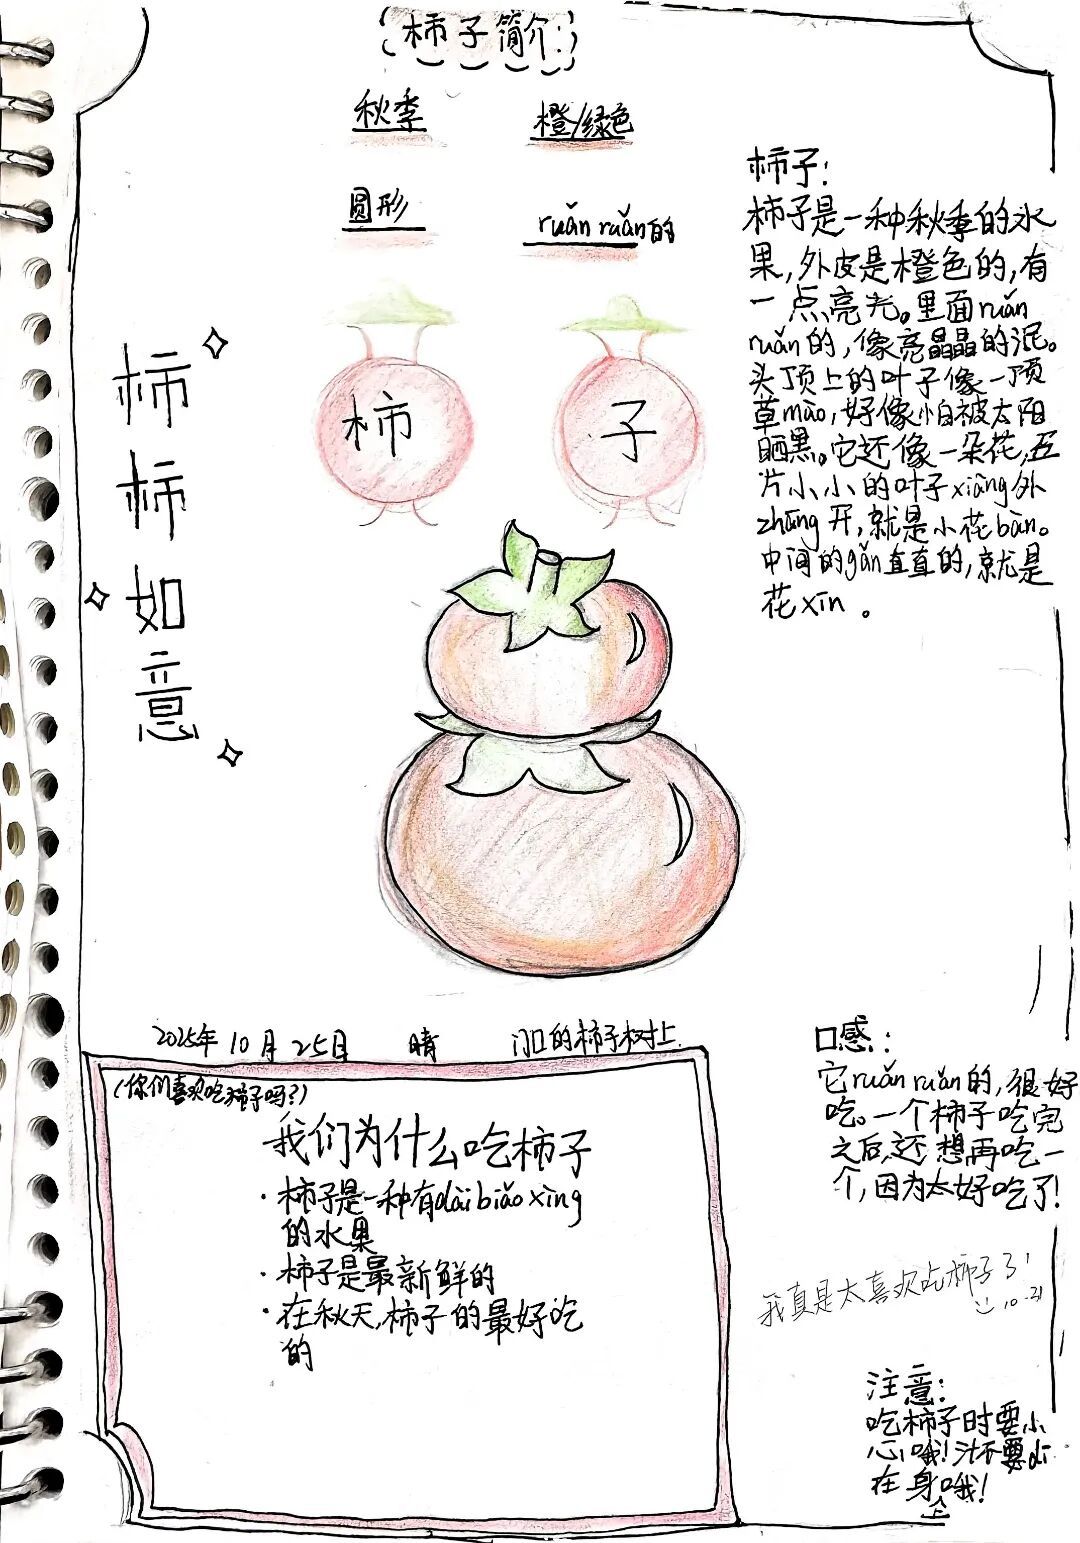 柿子简介:
秋季
橙/绿色
圆形
ruǎn ruǎn的
柿
子
柿柿如意
柿子:
柿子是一种秋季的水
果,外皮是橙色的,有
一点亮光。里面ruǎn
ruǎn的,像亮晶晶的泥。
头顶上的叶子像一顶
草mào,好像怕被太阳
晒黑。它还像一朵花,五
片小小的叶子xiàng外
zhāng开,就是小花bàn。
中间的gǎn直直的,就是
花xīn。
2025年10月25日 晴 门口的柿子树上.
(你们喜欢吃柿子吗?)
我们为什么吃柿子
·柿子是一种有dài biǎo xìng
的水果
·柿子是最新鲜的
·在秋天,柿子的最好吃
的
口感:
它ruǎn ruǎn的,很好
吃。一个柿子吃完
之后,还想再吃一
个,因为太好吃了!
我真是太喜欢吃柿子了!
10.21
注意:
吃柿子时要小
心哦!汁不要di
在身上哦!